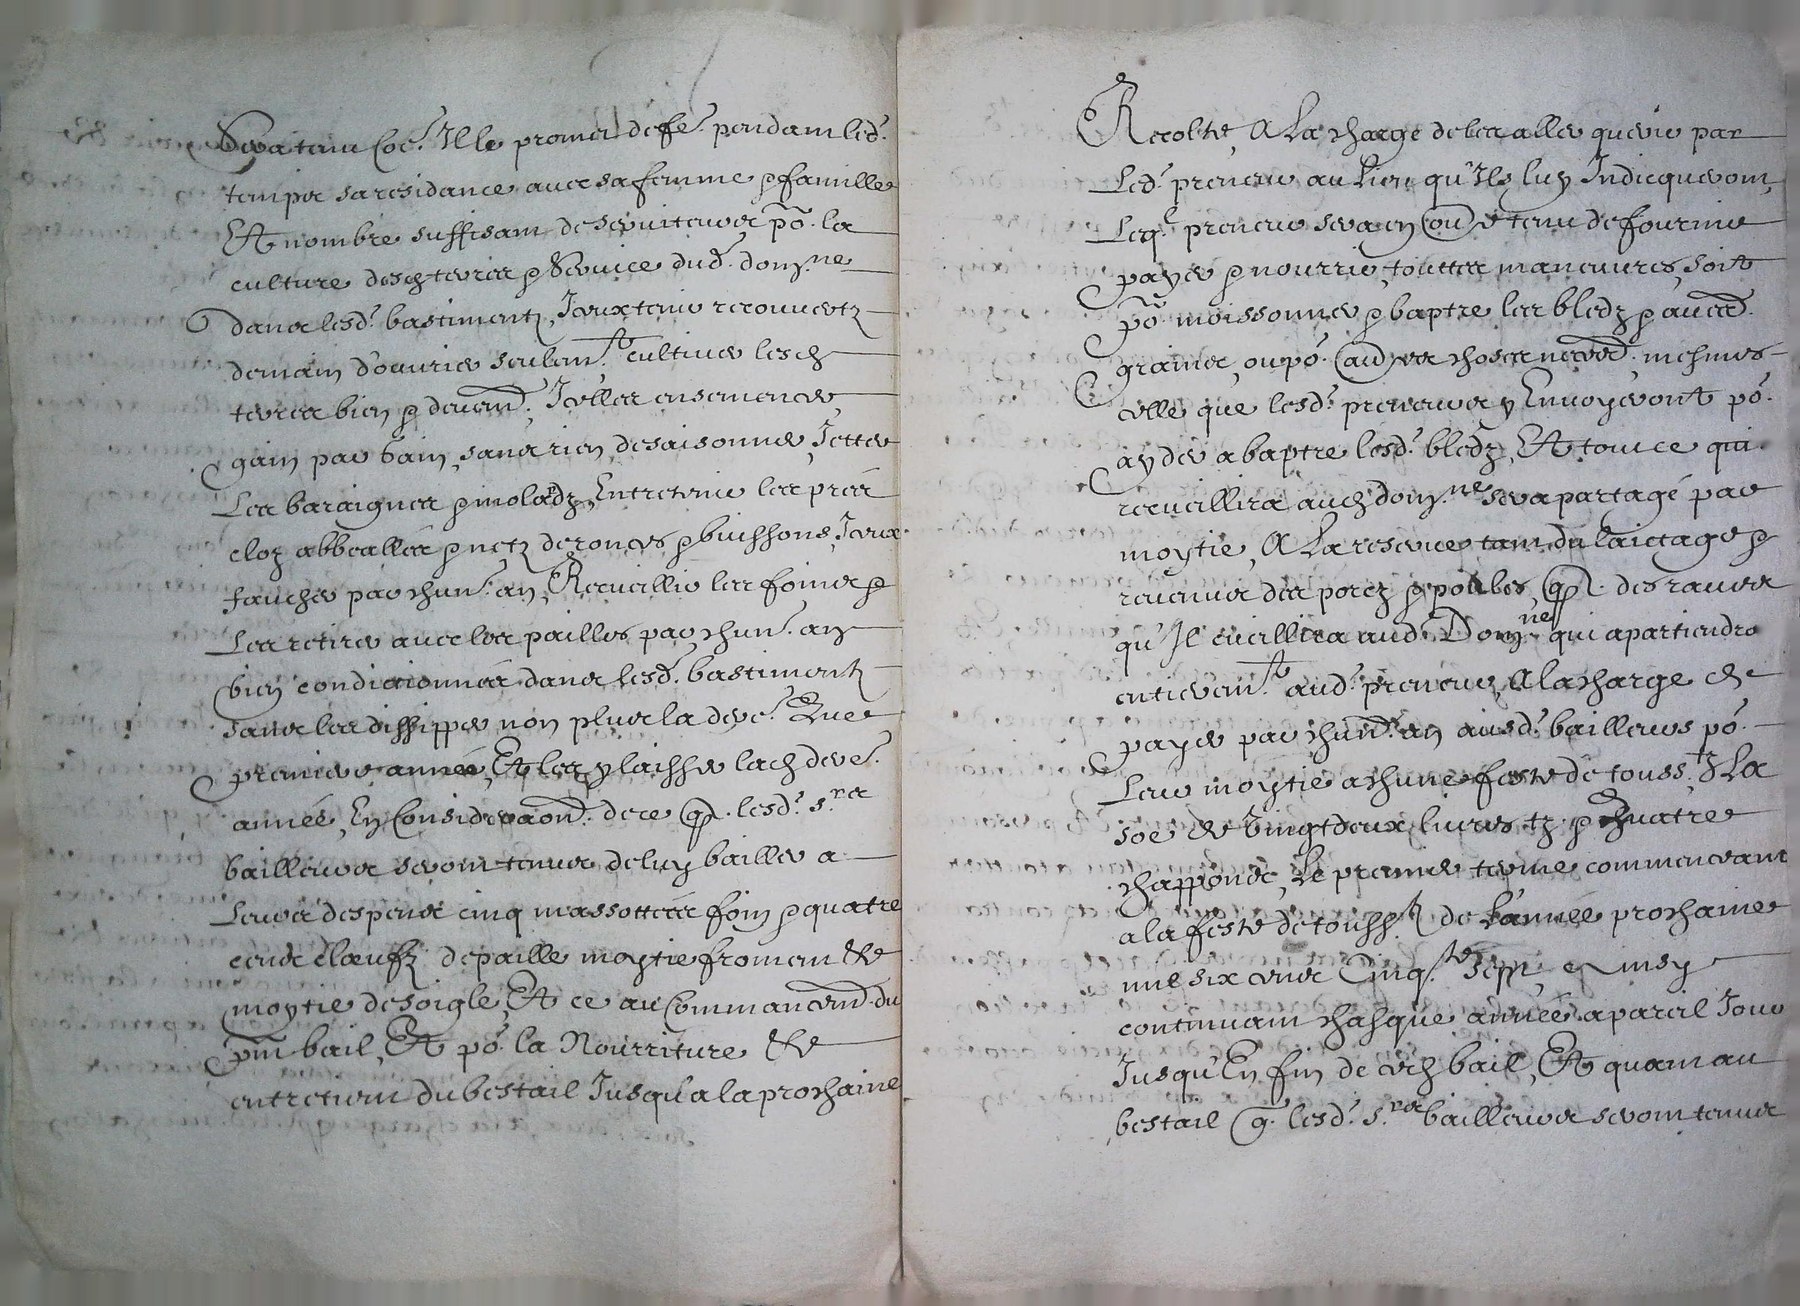 Sera tenu Coe. Il le promet de fe. pendant led.
temps sa residance avec sa femme & famille
Et nombre suffisant de serviteurs po. la
culture desd. terres & Service dud. dom.ne
dans lesd. bastimentz, Iceux tenir recouvertz
de main d'ouvrier seulem.t cultiver lesd.
terres bien & deuem. Icelles ensemencer
gain par gain, sans rien desaisonner, Jetter
Les baraignes & molardz, Entretenir les prés
cloz abbeallés & netz de ronces & buissons, Iceux
faucher par chun. an, Recueillir les foins &
Les retirer avec les pailles par chun. an
bien condicionnés dans lesd. bastimentz
sans les dissipper non plus la dere. Que
premiere année, Et les y laisser lad. dere.
année, En Consideraon. de ce q. lesd. s.rs
bailleurs seront tenus de luy bailler a
Leurs despens cinq massottées foin & quatre
cens cloeufz de paille moytie froment &
moytie de soigle, Et ce au Commancem. du
pnt bail, Et po. la Nourriture &
entretient du bestail Jusqu'a la prochaine
Recolte, A La charge de les aller querir par
Led. preneur au Lieu qu'Ils luy Indicqueront,
Leq. preneur sera en oultre tenu de fournir
payer & nourrir, touttes maneuvres, soit
po. moissonner & baptre les bledz & aud.
grains, ou po. aultres choses necess. mesmes
celle que lesd. preneurs y Envoyeront po.
ayder a baptre lesd. bledz, Et tout ce qui
recueillira aud. dom.ne sera partagé par
moytie, A La reserve tant du laictage &
revenus des porcz & poulles, q. des raves
qu'Il cueillira aud. Dom.ne qui apartiendra
entierem.t aud. preneur, A la charge de
payer par chun. an ausd. bailleurs po.
Leur moytie a chune feste de touss.ts La
soe de vingt deux livres tz. & quatre
chappons, Le premier terme commencant
a la feste de touss.ts de L'année prochaine
mil six cens Cinq.te sept, & ainsy
continuant chasque année a pareil Jour
Jusqu'En fin de ced. bail, Et quant au
bestail q. lesd. s.rs bailleurs seront tenus